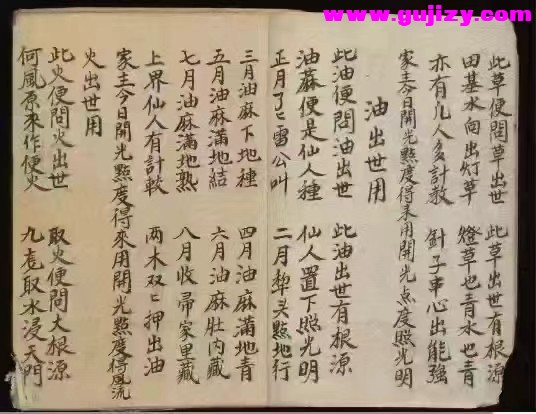 www.gujizy.com
此草便問草出世 此草出世有根源
田基水向出灯草 燈草也青水也青
亦有几人多計教 針子串心出能強
家主今日開光點度得來用開光点度照光明
油出世用
此油便問油出世 此油出世有根源
油蔴便是仙人種 仙人置下照光明
正月了〻雷公叫 二月犁头點地行
三月油麻下地種 四月油麻滿地青
五月油麻滿地結 六月油麻肚内藏
七月油麻滿地熟 八月收歸家里藏
上界仙人有計較 两木双〻押出油
家主今日開光點度得來用開光點度得風流
火出世用
此火便問火出世 取火便問大根源
何風原來作便火 九龙取水浸天門